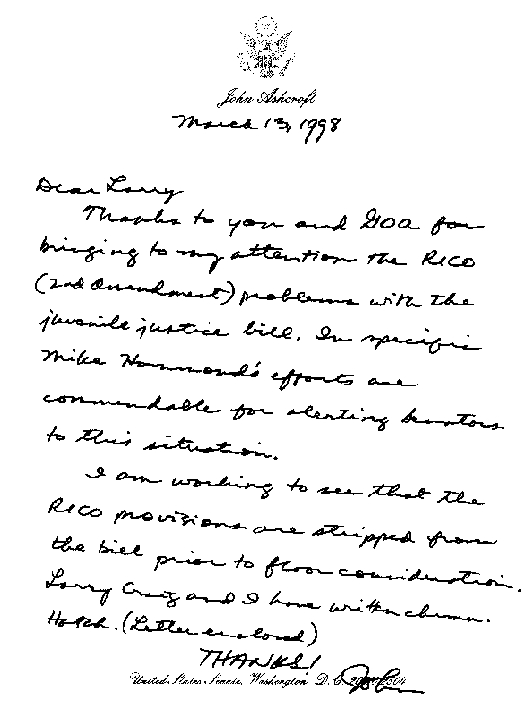 John Ashcroft
March 13, 1998
Dear Larry
Thanks to you and GOA for
bringing to my attention the RICO
(2nd Amendment) problems with the
juvenile justice bill. In specific
Mike Hammond's efforts are
commendable for alerting Senators
to this situation.
I am working to see that the
RICO provisions are stripped from
the bill prior to floor consideration.
Larry Craig and I have written chmn.
Hatch. (Letter enclosed)
THANKS!
John
United States Senate, Washington D.C.